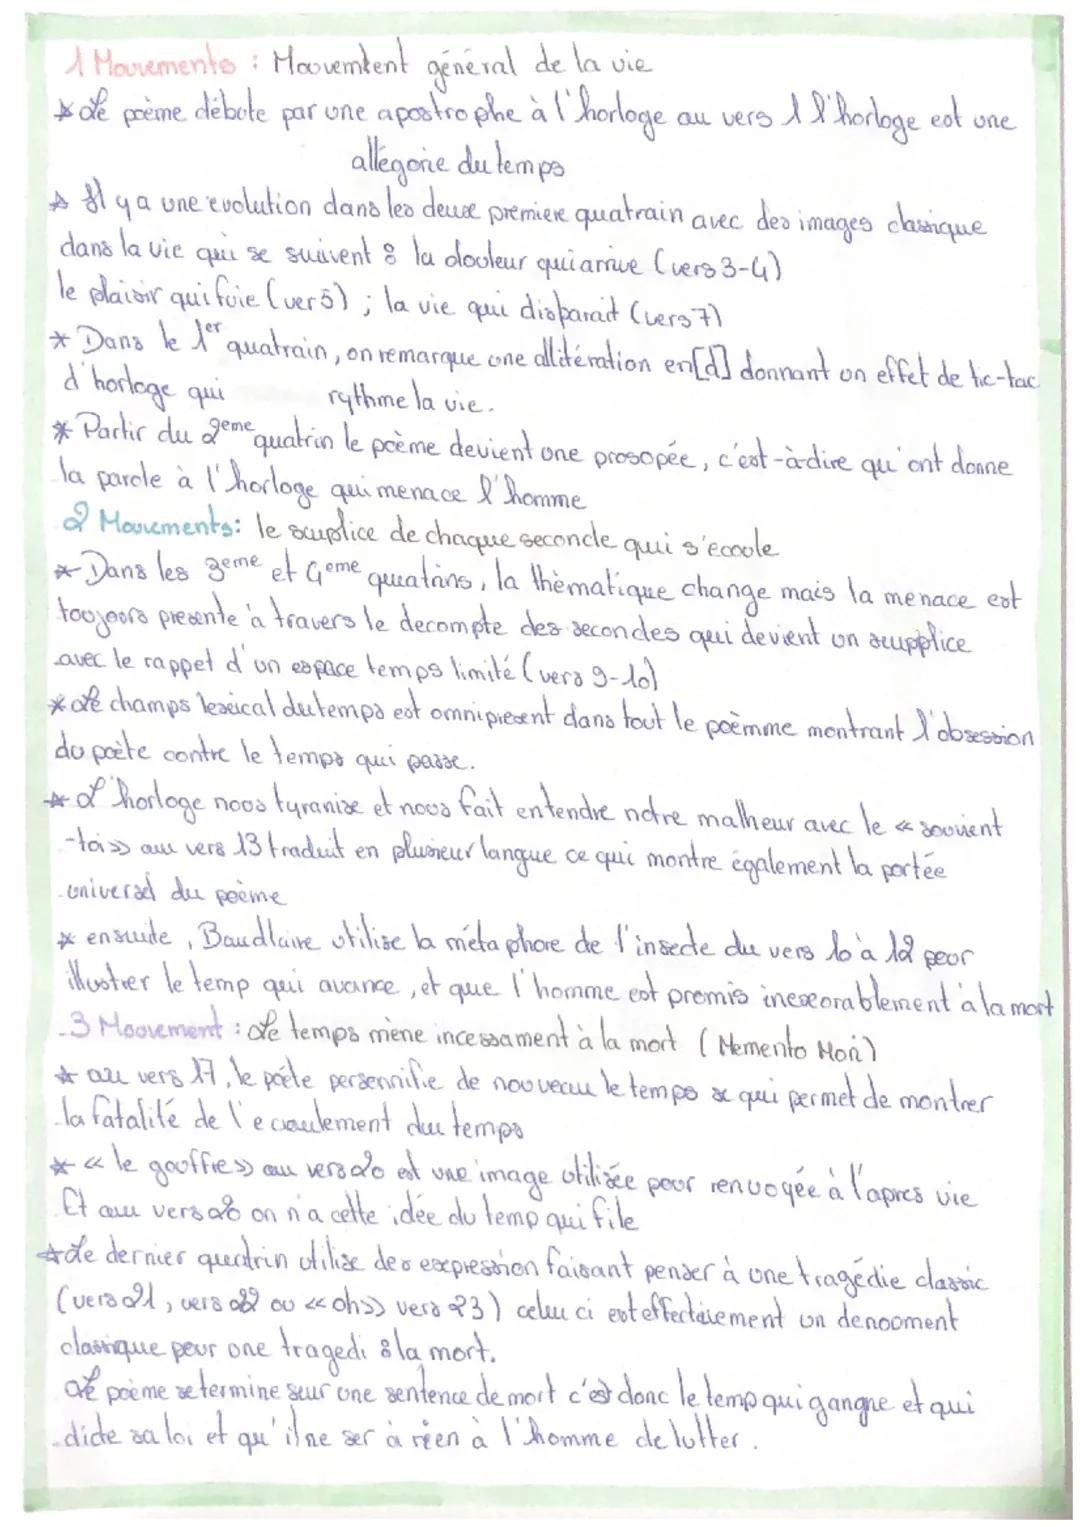 1 Mouvements : Mouvemtent général de la vie
* Le poème débute par une apostrophe à l'horloge au vers 1 l'horloge est une
allégorie du temps
* Il y a une evolution dans les deux premiere quatrain avec des images classique
dans la vie qui se suivent : la douleur qui arrive (vers 3-4)
le plaisir qui fuie (ver 5) ; la vie qui disparait (vers 7)
* Dans le 1er quatrain, on remarque une allitération en [d] donnant un effet de tic-tac
d'horloge qui rythme la vie.
* Partir du 2eme quatrin le poème devient one prosopée, c'est-à-dire qu'ont donne
la parole à l'horloge qui menace l'homme
2 Mouvements: le suuplice de chaque seconde qui s'ecoole
* Dans les 3eme et 4eme quatrins, la thèmatique change mais la menace est
toujoors presente à travers le decompte des secondes qui devient un supplice
avec le rappet d'un espace temps limité (vers 9-10)
* Le champs lexical du temps est omnipresent dans tout le poèmme montrant l'obsession
du poète contre le temps qui passe.
* L'horloge noos tyranise et nous fait entendre notre malheur avec le « souvient
-toi » au vers 13 traduit en plusieur langue ce qui montre également la portée
universel du poème
* ensuite, Baudlaire utilise la métaphore de l'insecte du vers 10 à 12 pour
illustrer le temp qui avance, et que l'homme est promis inexorablement à la mort
3 Moovement : Le temps mène incessament à la mort (Memento Mori)
* au vers 17, le poète personnifie de nouveau le temps se qui permet de montrer
la fatalité de l'ecoulement du temps
* « le gouffre » au vers 20 est une image utilisée pour renvoyée à l'apres vie
Et au vers 20 on n'a cette idée du temp qui file
* Le dernier quatrin utilise des expression faisant penser à one tragédie classic
(vers 21, vers 22 ou « oh » vers 23) celui ci est effectivement un denooment
classique pour one tragedi : la mort.
Le poème se termine sur une sentence de mort c'est donc le temp qui gangne et qui
dicte sa loi et qu'il ne ser à rien à l'homme de lutter.